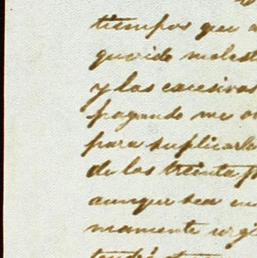 tiempos que a
querido molest
y las excesivas
pagando me o
para suplicarle
de los treinta p
aunque sea en
mamente urg
tendré